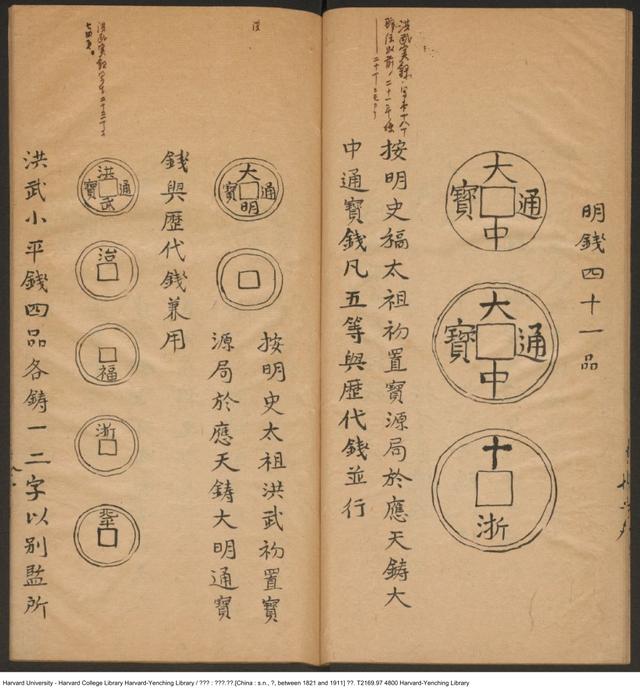 明錢四十一品
大中通寶
大中通寶
十
浙
按明史稿太祖初置寶源局於應天鑄大
中通寶錢凡五等與歷代錢並行
大明通寶
按明史太祖洪武初置寶
源局於應天鑄大明通寶
錢與歷代錢兼用
洪武通寶
福
浙
洪武小平錢四品各鑄一二字以別監所
Harvard University - Harvard College Library Harvard-Yenching Library / ??? : ???.??.[China : s.n., ?, between 1821 and 1911] ??. T2169.97 4800 Harvard-Yenching Library